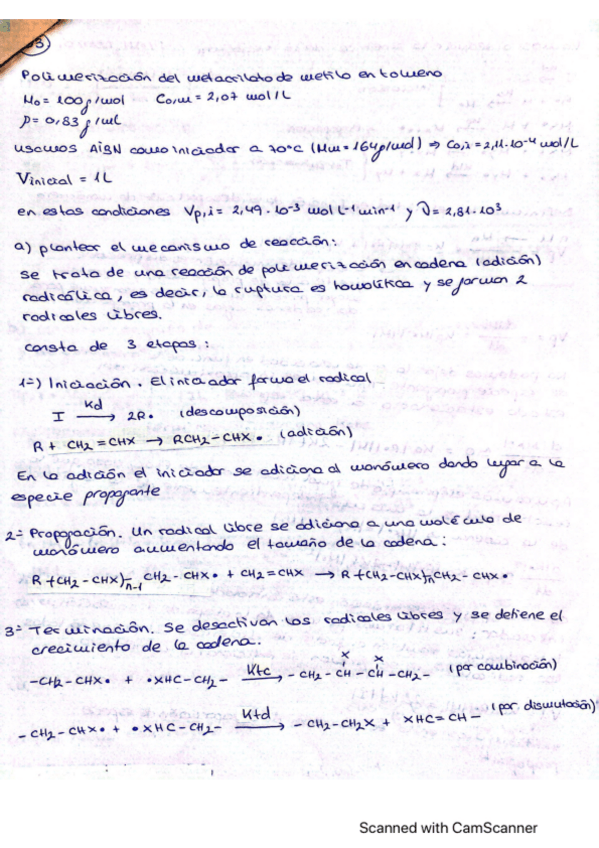 3
Polimerización del metacrilato de metilo en tolueno
M₀ = 100 g/mol Co,m = 2,07 mol/L
ρ = 0,83 g/mL
usamos AIBN como iniciador a 70°C (Mm = 164 g/mol) ⇒ Co,i = 2,11·10⁻⁴ mol/L
Vinicial = 1L
en estas condiciones Vp,i = 2,49·10⁻³ mol L⁻¹ min⁻¹ y ν = 2,81·10³
a) plantear el mecanismo de reacción:
se trata de una reacción de polimerización en cadena (adición)
radicálica, es decir, la ruptura es homolítica y se forman 2
radicales libres.
consta de 3 etapas:
1º) Iniciación. El iniciador forma el radical
I —Kd→ 2R• (descomposición)
R + CH2 = CHX → RCH2 - CHX• (adición)
En la adición el iniciador se adiciona al monómero dando lugar a la
especie propagante
2º Propagación. Un radical libre se adiciona a una molécula de
monómero aumentando el tamaño de la cadena:
R+(CH2 - CHX)n-1 CH2 - CHX• + CH2 = CHX → R+(CH2 - CHX)n CH2 - CHX•
3º Terminación. Se desactivan los radicales libres y se detiene el
crecimiento de la cadena:
X X
-CH2 - CHX• + •XHC - CH2- —Ktc→ - CH2 - CH - CH - CH2- (por combinación)
- CH2 - CHX• + •XHC - CH2- —Ktd→ - CH2 - CH2X + XHC = CH - (por dismutación)
Scanned with CamScanner